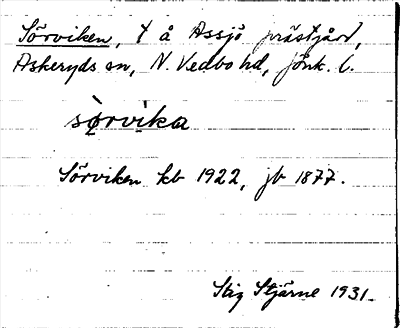 Sörviken, t å Assjö prästgård,
Askeryds sn, N. Vedbo hd, Jönk. l.
sörvika
Sörviken kb 1922, jb 1877.
Stig Stjärne 1931.